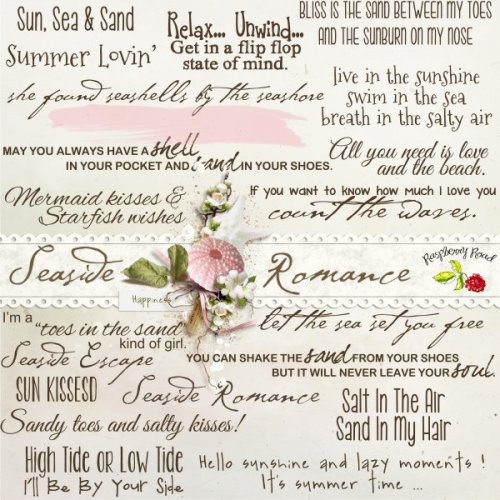 Sun, Sea & Sand
Summer Lovin'
Relax... Unwind...
Get in a flip flop
state of mind.
BLISS IS THE SAND BETWEEN MY TOES
AND THE SUNBURN ON MY NOSE
she found seashells by the seashore
live in the sunshine
swim in the sea
breath in the salty air
MAY YOU ALWAYS HAVE A shell
IN YOUR POCKET AND sand IN YOUR SHOES.
All you need is love
and the beach.
Mermaid kisses &
Starfish wishes
If you want to know how much I love you
count the waves.
Seaside Romance
Raspberry Road
Happiness
I'm a
"toes in the sand"
kind of girl.
let the sea set you free
Seaside Escape
YOU CAN SHAKE THE sand FROM YOUR SHOES
BUT IT WILL NEVER LEAVE YOUR soul.
SUN KISSESD
Seaside Romance
Salt In The Air
Sand In My Hair
Sandy toes and salty kisses!
High Tide or Low Tide
I'll Be By Your Side
Hello sunshine and lazy moments !
It's summer time ...